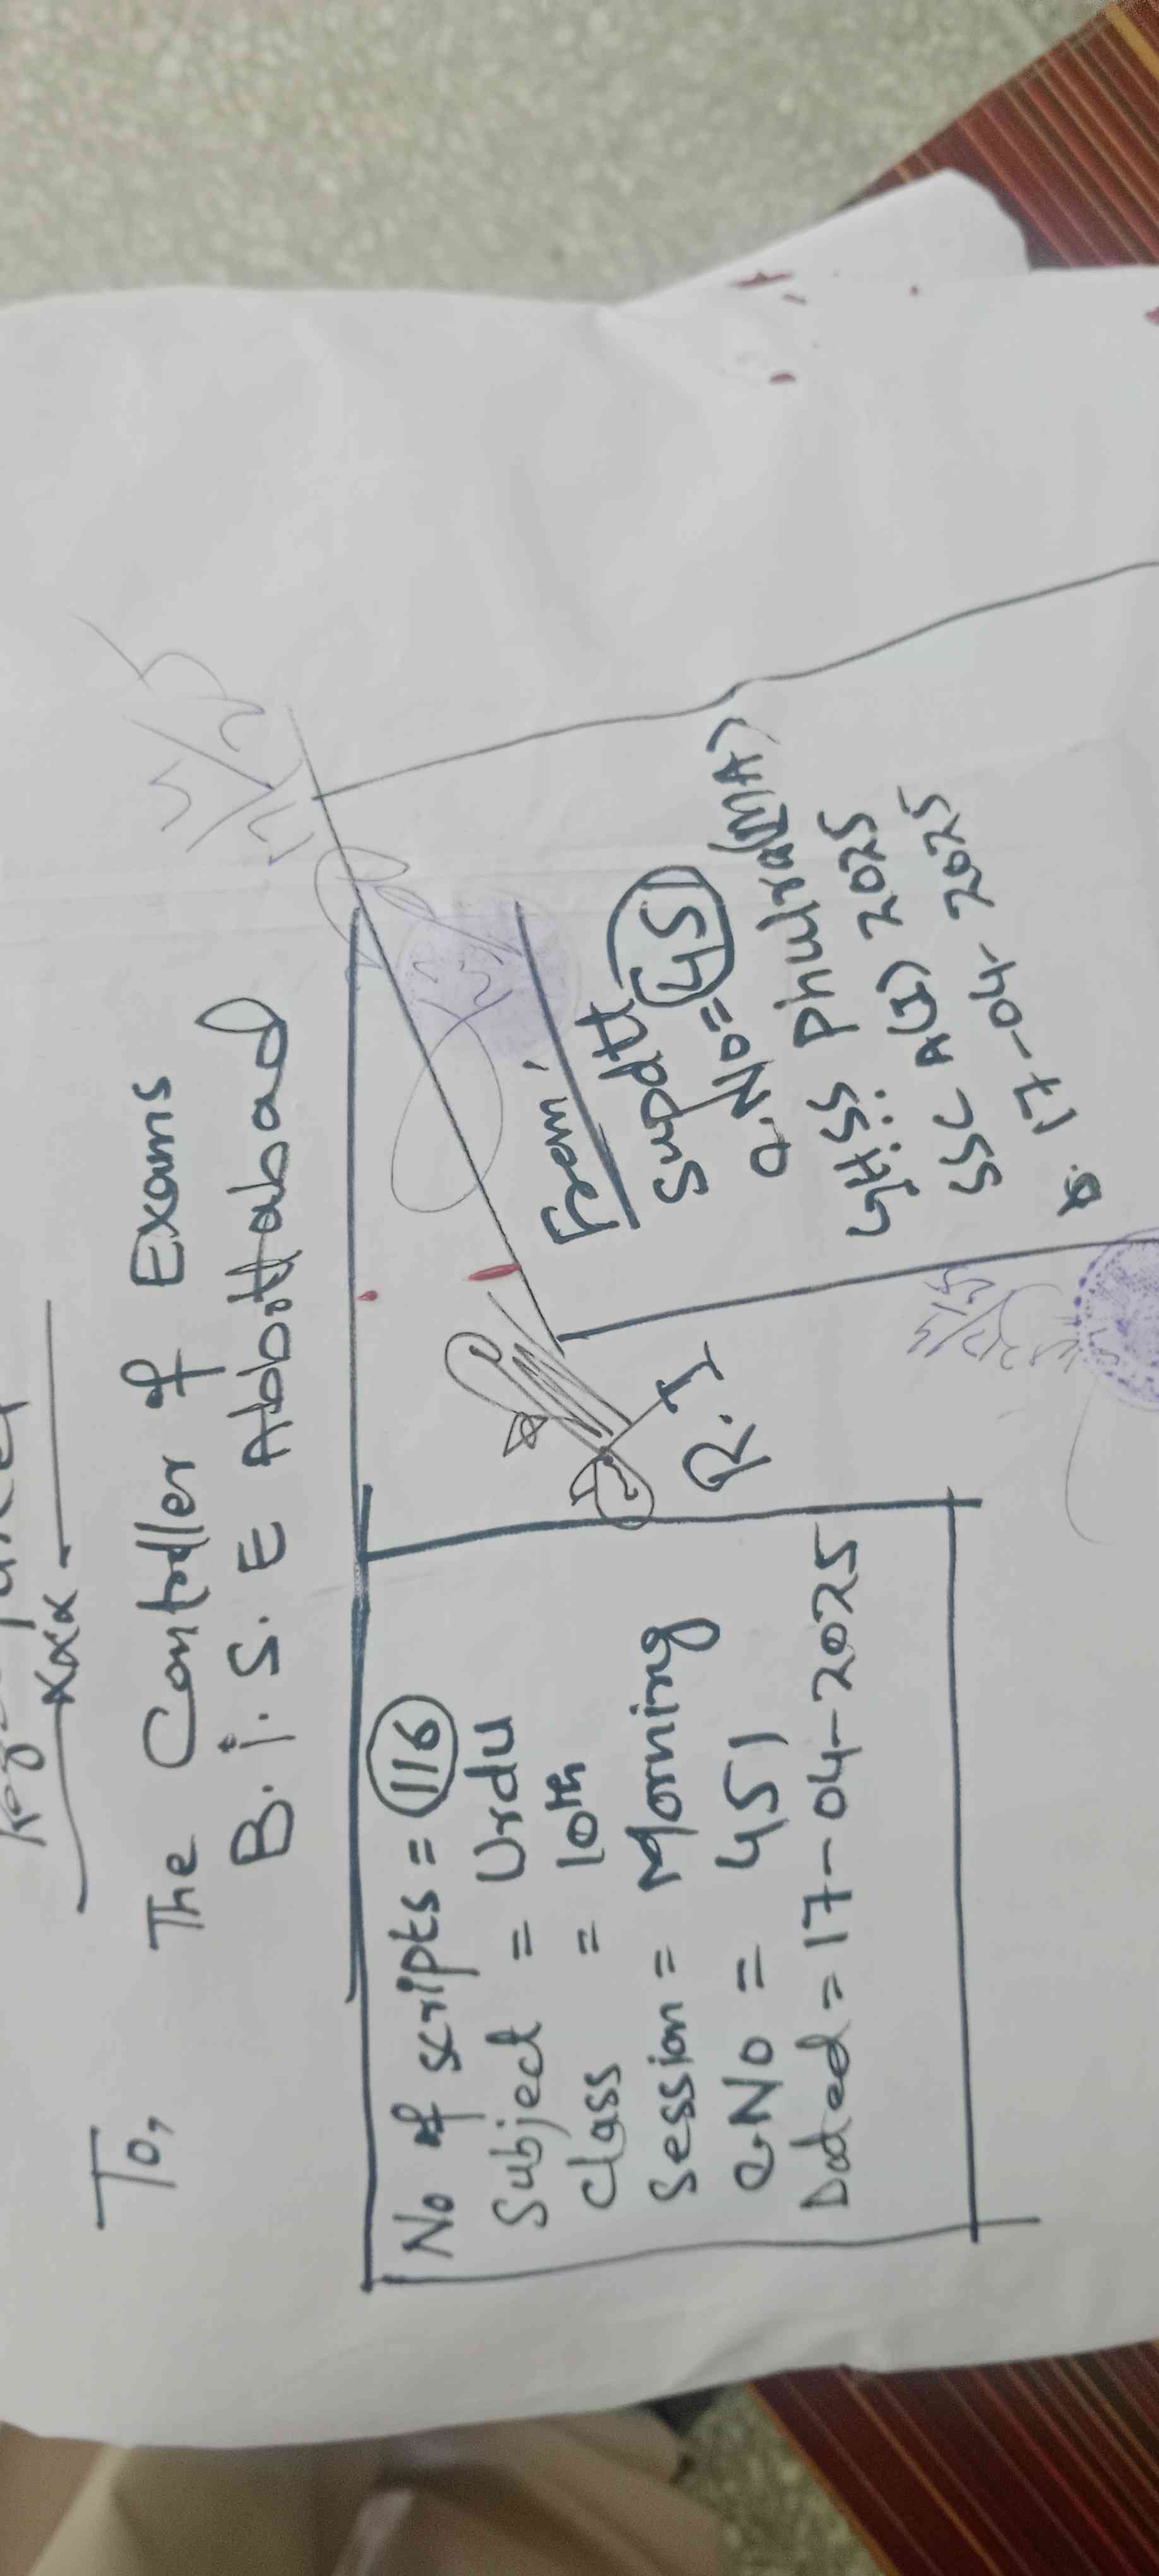 xxx
To,
The Controller of Exams
B.i.S.E Abbottabad
No of scripts = 116
Subject = Urdu
Class = 10th
Session = Morning
C.No = 451
Dated = 17-04-2025
R.I
From,
Supdtt
C.No = 451
GHSS Phulra (MA)
SSC A(I) 2025
17-04-2025